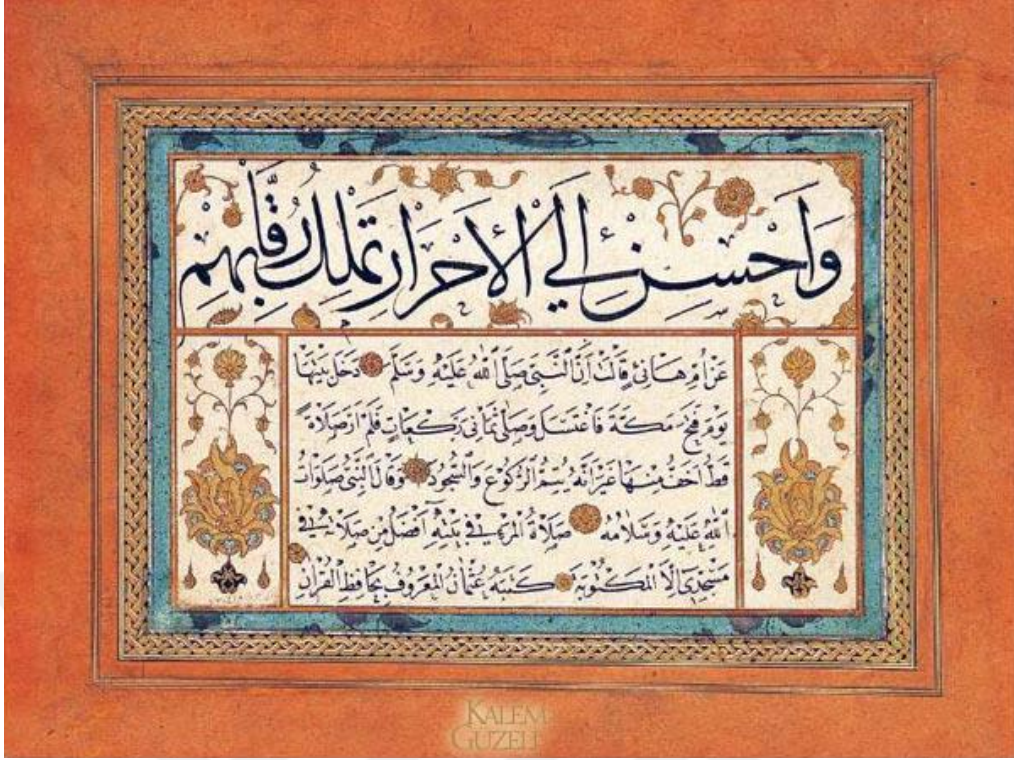 وَاَحْسِنْ اِلَي الْاَحْرَارِ تَمْلِكْ رِقَابَهُمْ
عَنْ اُمِّ هَانِئٍ قَالَتْ اِنَّ النَّبِىَّ صَلَّى اللهُ عَلَيْهِ وَسَلَّمَ دَخَلَ بَيْتَهَا
يَوْمَ فَتْحِ مَكَّةَ فَاغْتَسَلَ وَصَلَّى ثَمَانِىَ رَكَعَاتٍ فَلَمْ اَرَ صَلَاةً
قَطُّ اَخَفَّ مِنْهَا غَيْرَ اَنَّهُ يُتِمُّ الرُّكُوعَ وَالسُّجُودَ وَقَالَ النَّبِىُّ صَلَوَاتُ
اللهِ عَلَيْهِ وَسَلَامُهُ صَلَاةُ الْمَرْءِ فِي بَيْتِهِ اَفْضَلُ مِنْ صَلَاتِهِ فِي
مَسْجِدِى اِلَّا الْمَكْتُوبَةَ كَتَبَهُ عُثْمَانُ الْمَعْرُوفُ بِحَافِظِ الْقُرْاٰنِ
KALEM
GUZELI